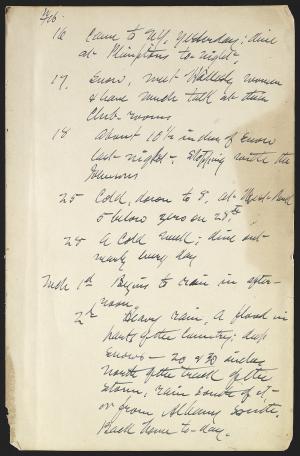 16 Came to N.Y. yesterday; dine
at Plimptons to-night.
17. Snow, meet Wellesley women
& have much talk at their
Club-rooms
18 About 10 1/2 inches of Snow
last-night-. Stopping with the
Johnsons
25 Cold, down to 8, at West Park
5 below zero on 25th
28 A Cold week; dine out
nearly every day
Mch 1st Begins to rain in after-
noon.
2d Heavy rain, A flood in
parts of the Country; deep
snows - 20 & 30 inches
north of the track of the
storm, rain south of it,
or from Albany south.
Back home to-day.